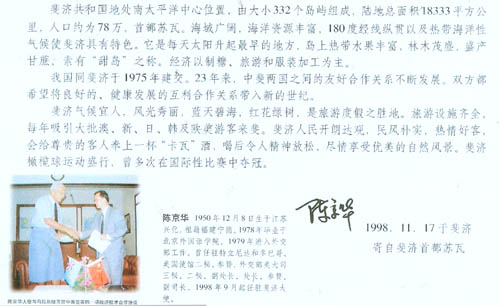 斐济共和国地处南太平洋中心位置,由大小332个岛屿组成,陆地总面积18333平方
公里,人口约为78万,首都苏瓦。海域广阔,海洋资源丰富,180度经线纵贯以及热带海洋性
气候使斐济具有特色。它是每天太阳升起最早的地方,岛上热带水果丰富,林木茂盛,盛产
甘蔗,素有“甜岛”之称。经济以制糖、旅游和服装加工为主。
我国同斐济于1975年建交。23年来,中斐两国之间的友好合作关系不断发展。双方都
希望将良好的、健康发展的互利合作关系带入新的世纪。
斐济气候宜人,风光秀丽,蓝天碧海,红花绿树,是旅游度假之胜地。旅游设施齐全,
每年吸引大批澳、新、日、韩及欧美游客来斐。斐济人民开朗达观,民风朴实,热情好客,
会给尊贵的客人奉上一杯“卡瓦”酒,喝后令人精神放松,尽情享受优美的自然风景。斐济
橄榄球运动盛行,曾多次在国际性比赛中夺冠。
陈京华
陈京华 1950年12月8日生于江苏
兴化,祖籍福建宁德。1978年毕业于
北京外国语学院,1979年进入外交
部工作。曾任驻特立尼达和多巴哥、
美国使馆二秘、参赞,外交部美大司
三秘、二秘、副处长、处长、参赞、
副司长。1998年9月起任驻斐济大
使。
1998.11.17于斐济
寄自斐济首都苏瓦